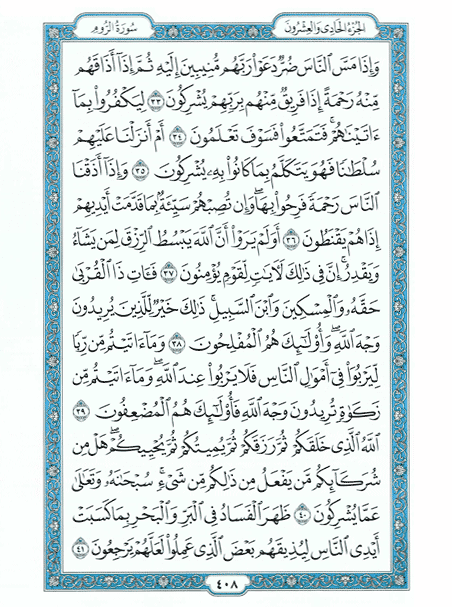 الجزء الحادي والعشرون
سورة الروم
وَإِذَا مَسَّ ٱلنَّاسَ ضُرٌّ دَعَوْا۟ رَبَّهُم مُّنِيبِينَ إِلَيْهِ ثُمَّ إِذَآ أَذَاقَهُم
مِّنْهُ رَحْمَةً إِذَا فَرِيقٌ مِّنْهُم بِرَبِّهِمْ يُشْرِكُونَ ٣٣ لِيَكْفُرُوا۟ بِمَآ
ءَاتَيْنَٰهُمْ ۚ فَتَمَتَّعُوا۟ فَسَوْفَ تَعْلَمُونَ ٣٤ أَمْ أَنزَلْنَا عَلَيْهِمْ
سُلْطَٰنًا فَهُوَ يَتَكَلَّمُ بِمَا كَانُوا۟ بِهِۦ يُشْرِكُونَ ٣٥ وَإِذَآ أَذَقْنَا
ٱلنَّاسَ رَحْمَةً فَرِحُوا۟ بِهَا ۖ وَإِن تُصِبْهُمْ سَيِّئَةٌۢ بِمَا قَدَّمَتْ أَيْدِيهِمْ
إِذَا هُمْ يَقْنَطُونَ ٣٦ أَوَلَمْ يَرَوْا۟ أَنَّ ٱللَّهَ يَبْسُطُ ٱلرِّزْقَ لِمَن يَشَآءُ
وَيَقْدِرُ ۚ إِنَّ فِى ذَٰلِكَ لَءَايَٰتٍ لِّقَوْمٍ يُؤْمِنُونَ ٣٧ فَـَٔاتِ ذَا ٱلْقُرْبَىٰ
حَقَّهُۥ وَٱلْمِسْكِينَ وَٱبْنَ ٱلسَّبِيلِ ۚ ذَٰلِكَ خَيْرٌ لِّلَّذِينَ يُرِيدُونَ
وَجْهَ ٱللَّهِ ۖ وَأُو۟لَٰٓئِكَ هُمُ ٱلْمُفْلِحُونَ ٣٨ وَمَآ ءَاتَيْتُم مِّن رِّبًا
لِّيَرْبُوَا۟ فِىٓ أَمْوَٰلِ ٱلنَّاسِ فَلَا يَرْبُوا۟ عِندَ ٱللَّهِ ۖ وَمَآ ءَاتَيْتُم مِّن
زَكَوٰةٍ تُرِيدُونَ وَجْهَ ٱللَّهِ فَأُو۟لَٰٓئِكَ هُمُ ٱلْمُضْعِفُونَ ٣٩
ٱللَّهُ ٱلَّذِى خَلَقَكُمْ ثُمَّ رَزَقَكُمْ ثُمَّ يُمِيتُكُمْ ثُمَّ يُحْيِيكُمْ ۖ هَلْ مِن
شُرَكَآئِكُم مَّن يَفْعَلُ مِن ذَٰلِكُم مِّن شَىْءٍ ۚ سُبْحَٰنَهُۥ وَتَعَٰلَىٰ
عَمَّا يُشْرِكُونَ ٤٠ ظَهَرَ ٱلْفَسَادُ فِى ٱلْبَرِّ وَٱلْبَحْرِ بِمَا كَسَبَتْ
أَيْدِى ٱلنَّاسِ لِيُذِيقَهُم بَعْضَ ٱلَّذِى عَمِلُوا۟ لَعَلَّهُمْ يَرْجِعُونَ ٤١
٤٠٨